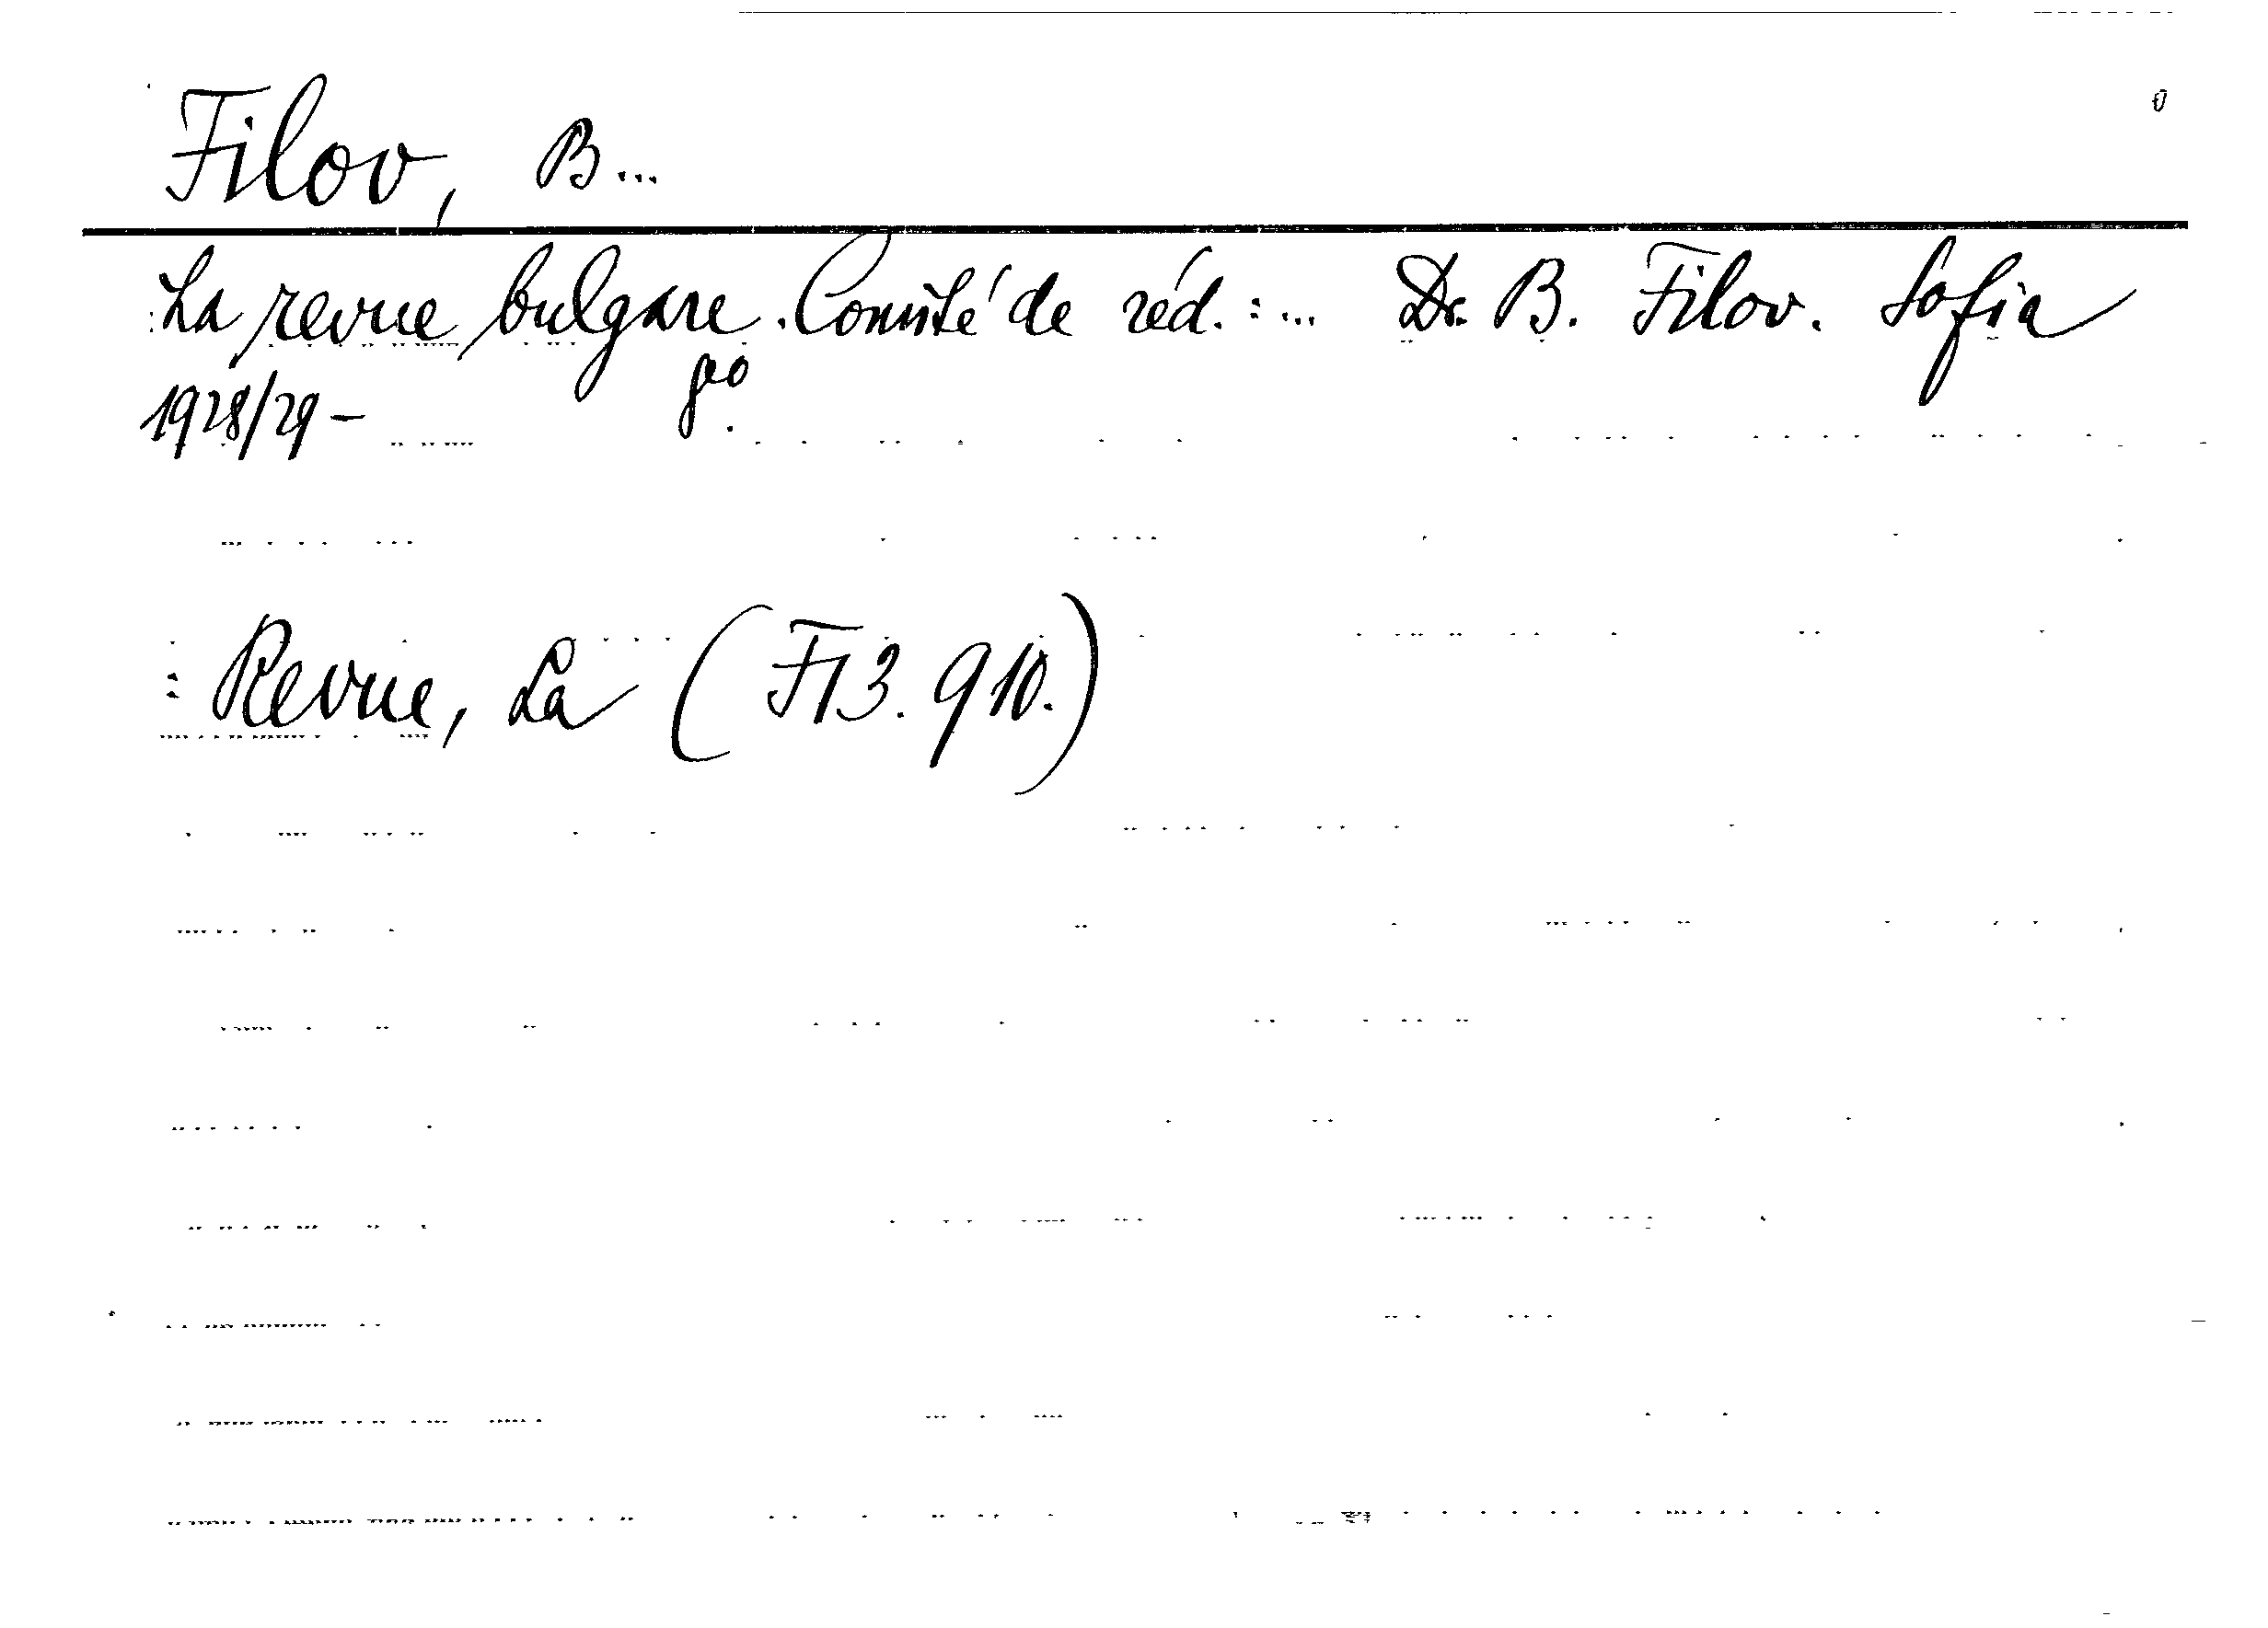 Filov, B...
La revue bulgare. Comité de réd. : ... Dr. B. Filov. Sofia
1928/29 -
: Revue, La (F13.910.)